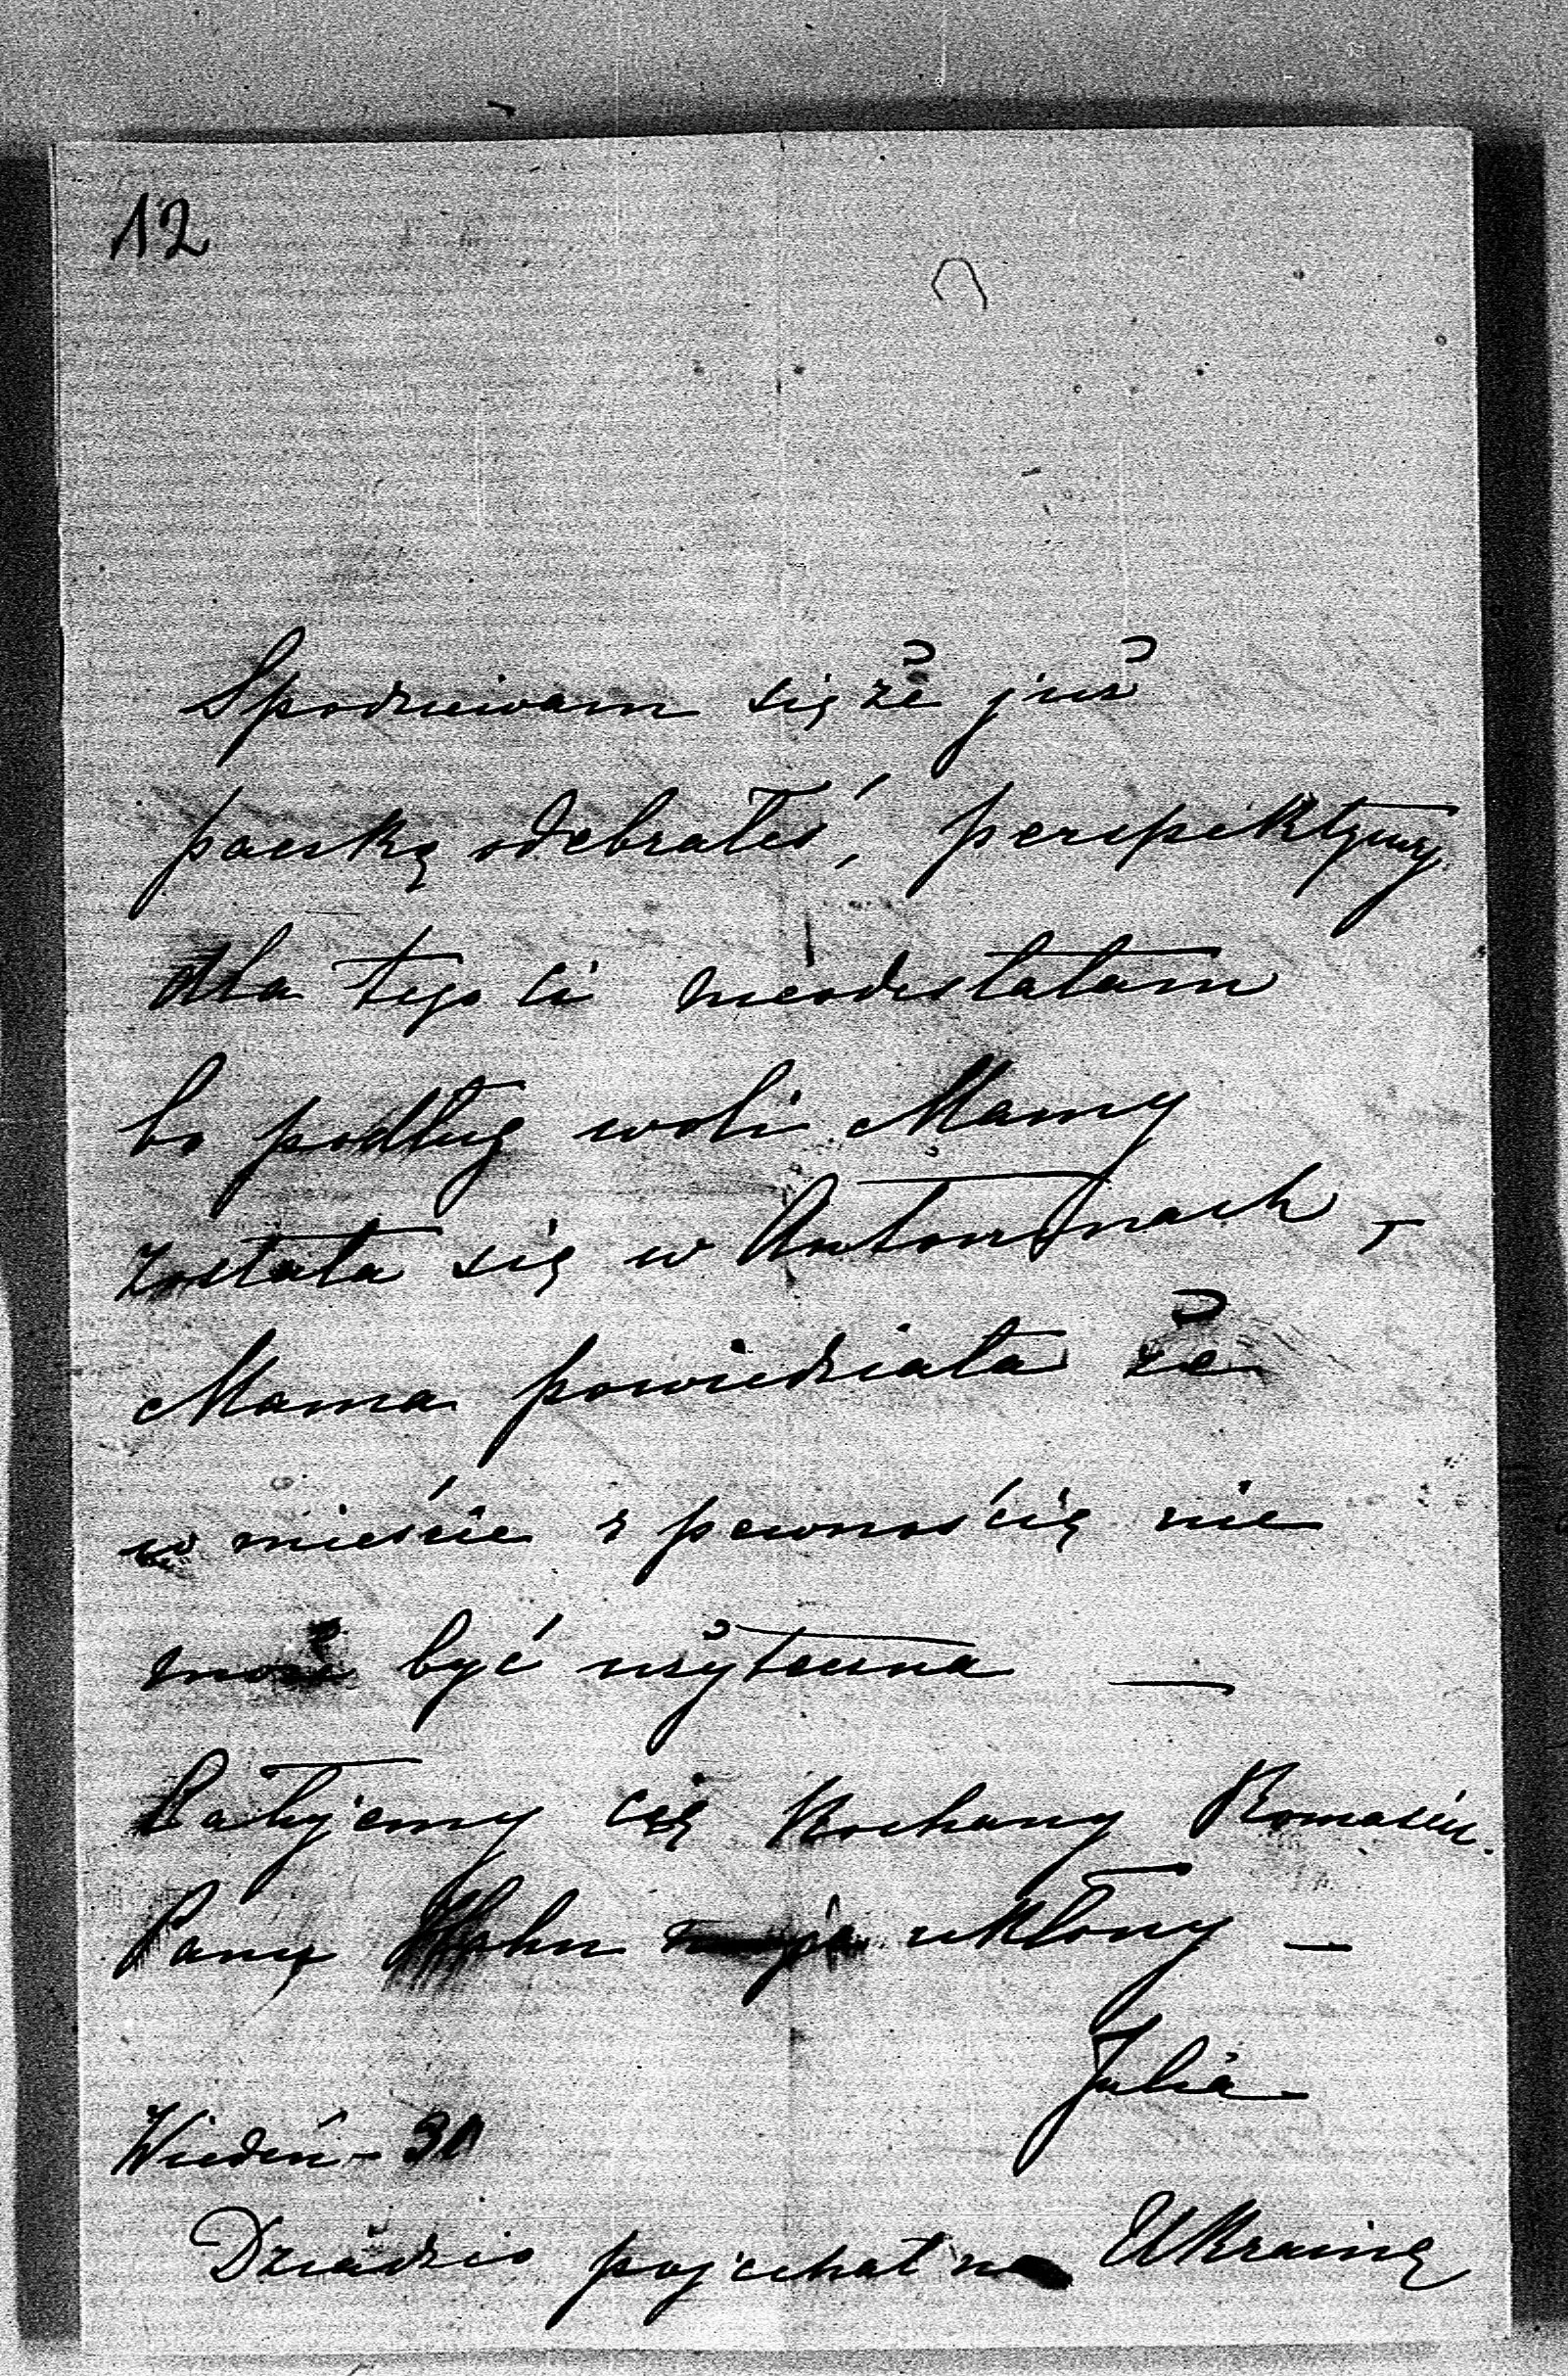 12
Spodziewam się że już
paczkę odebrałeś, perspektywy
dla tego ci nieodesłałam
bo podług woli Mamy
została się w Antoninach,
Mama powiedziała że
w mieście z pewnością nie
może być użyteczna —
Całujemy cię Kochany
Panu Hahn moje ukłony —
Julia
Wiedeń - 31
Dziadzio pojechał na Ukrainę